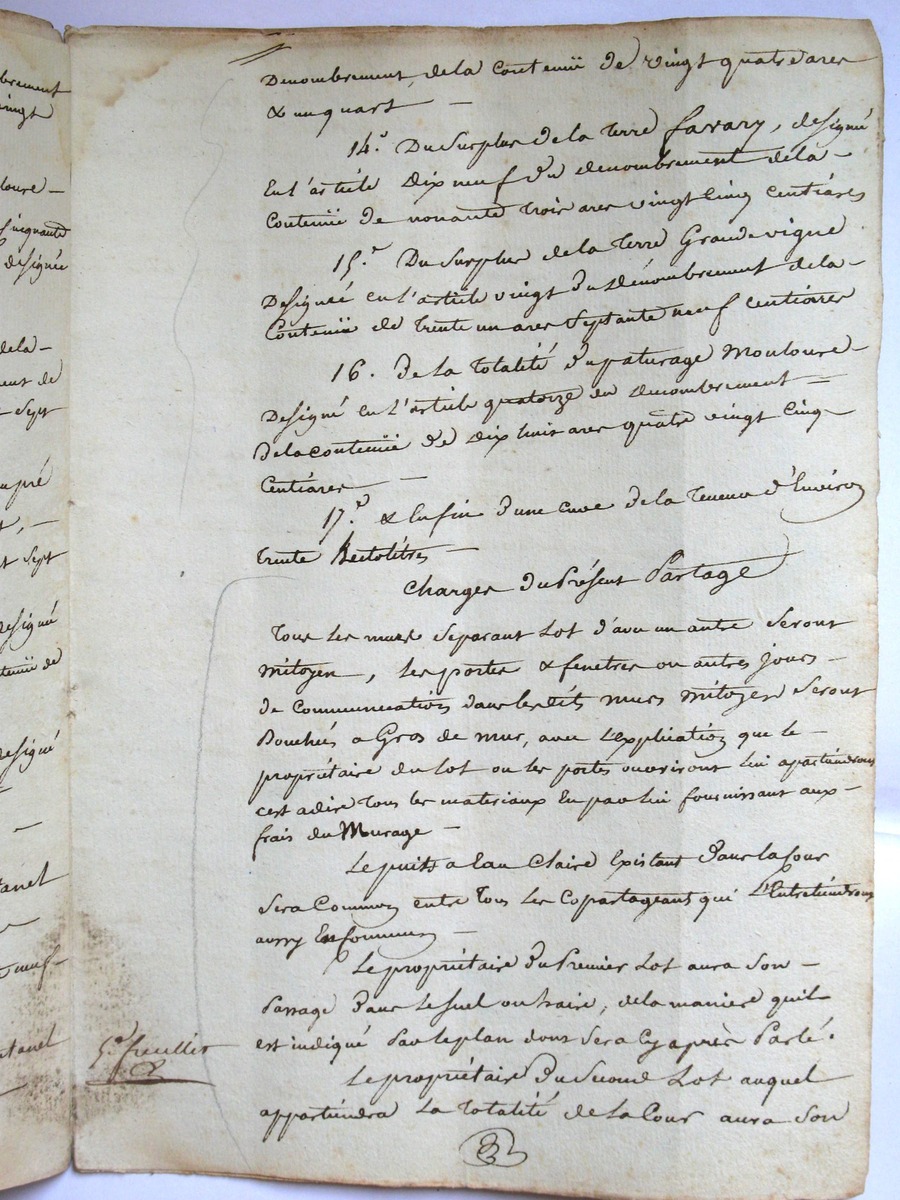 brement
vingt
Denombrement, de la Contenüe de vingt quatre ares
& un quart —
14.° Du Surplus de la Terre favary, designé
En l'article Dix neuf du denombrement de la —
Contenüe de nonante trois ares vingt Cinq Centiares
15.° Du Surplus de la Terre Grande vigne
Designée en l'article vingt du Dénombrement de la —
Contenüe de Trente un ares Septante neuf Centiares
16. De la Totalité du paturage Mouloure —
Designé en l'article quatorze du denombrement —
De la contenüe de Dix huit ares quatre vingt Cinq
Centiares —
17.° & Enfin d'une Cuve de la Teneur d'Environ
trente hectolitres —
Charges du Présent Partage
Tous les murs Séparant Lot d'avec un autre Seront
Mitoyen, les portes & fenetres ou autres jours —
de Communication dans lesdits murs Mitoyens Seront
Bouchés a Gros de mur, avec L'explication que le —
propriétaire du Lot ou les portes ouvriront lui apartiendront
c'est a dire Tous les materiaux En par lui fournissant aux —
frais du Murage —
Le puits a Eau Claire Existant Dans la Cour
Sera Commun entre Tous les Copartageants qui L'Entretiendront
aussy En Commun —
Le propriétaire du Premier Lot aura Son —
Passage Dans le Suel ou haire, de la maniere quil
est indiqué Par le plan dont Sera Cy après Parlé.
Le propriétaire Du Second Lot auquel
appartiendra La Totalité de la Cour aura Son
loure —
Cinquante
designée
de la —
ment de
Sept
pré
Sept
designé
tenüe de
designé
tanel
neuf —
5.e feuillet